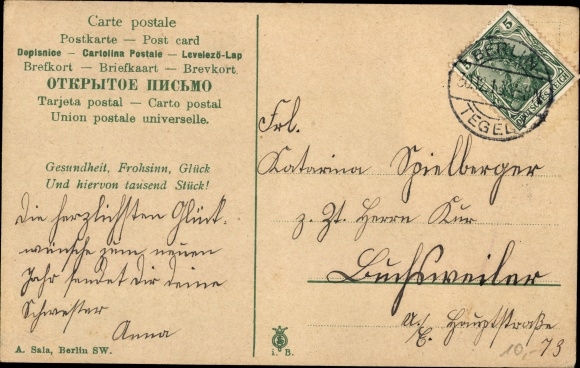 Carte postale
Postkarte — Post card
Dopisnice — Cartolina Postale — Levelező-Lap
Brefkort — Briefkaart — Brevkort
ОТКРЫТОЕ ПИСЬМО
Tarjeta postal — Carto postal
Union postale universelle.
Gesundheit, Frohsinn, Glück
Und hiervon tausend Stück!
Die herzlichsten Glück-
wünsche zum neuen
Jahr sendet Dir deine
Schwester
Anna
A. Sala, Berlin SW.
i. B.
5
BERLIN
TEGEL
Frl.
Katarina Spielberger
z. Zt. Herrn Kur
Buchsweiler
a/E. Hauptstraße
73
10,-